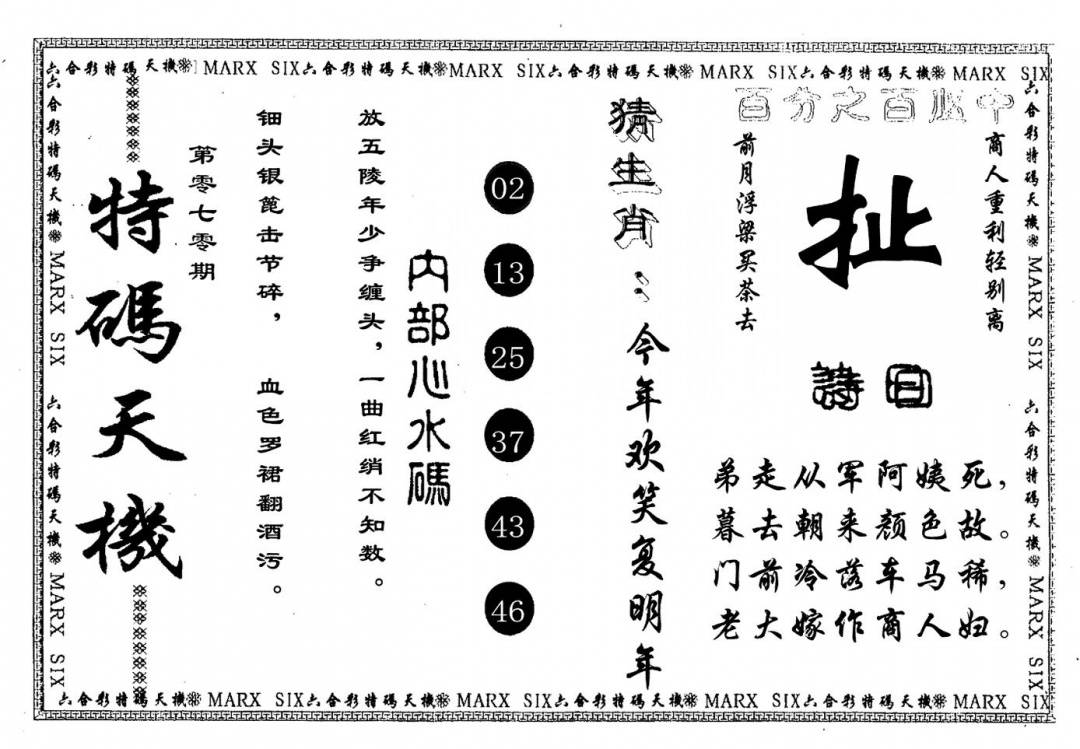 六合彩特碼天機 MARX SIX六合彩特碼天機MARX SIX六合彩特碼天機MARX SIX六合彩特碼天機MARX SIX
六合彩特碼天機MARX SIX 六合彩特碼天機MARX SIX
特碼天機
第零七零期
钿头银篦击节碎， 血色罗裙翻酒污。
放五陵年少争缠头，一曲红绡不知数。
内部心水碼
02
13
25
37
43
46
猜生肖：今年欢笑复明年
百分之百必中
前月浮梁买茶去
扯
商人重利轻别离
詩曰
弟走从军阿姨死，
暮去朝来颜色故。
门前冷落车马稀，
老大嫁作商人妇。
六合彩特碼天機MARX SIX 六合彩特碼天機MARX SIX
六合彩特碼天機MARX SIX六合彩特碼天機MARX SIX六合彩特碼天機MARX SIX六合彩特碼天機MARX SIX